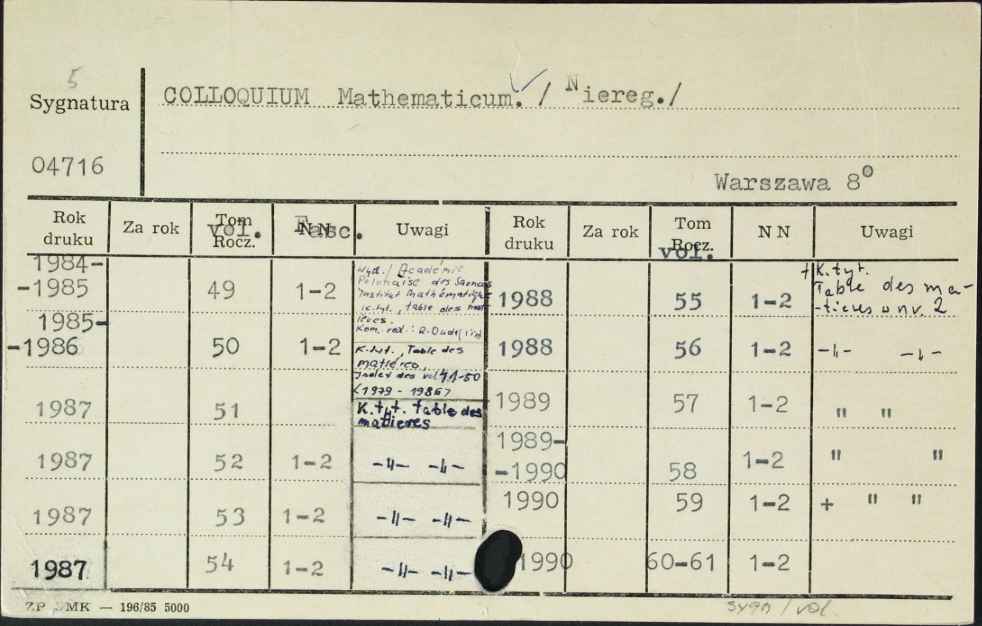 5
Sygnatura COLLOQUIUM Mathematicum. / Niereg./
04716
Warszawa 8°
Rok druku Za rok Tom Rocz. vol. NN Fasc. Uwagi Rok druku Za rok Tom Rocz. vol. NN Uwagi
1984-
-1985 49 1-2
Académie
Polonaise des
Institut Mathématique
k. tyt., table des
Kom. red.:
1988 55 1-2 + K. tyt.
Table des ma-
-tieres w nr. 2
1985-
-1986 50 1-2 K. tyt., Table des
matières,
Index des vol 41-50
(1979 - 1986)
1988 56 1-2 -"- -"-
1987 51 K. tyt. table des
matieres
1989 57 1-2 " "
1987 52 1-2 -"- -"-
1989-
-1990 58 1-2 " "
1987 53 1-2 -"- -"-
1990 59 1-2 + " "
1987 54 1-2 -"- -"-
1990 60-61 1-2
ZP UMK — 196/85 5000
sygn / vol.